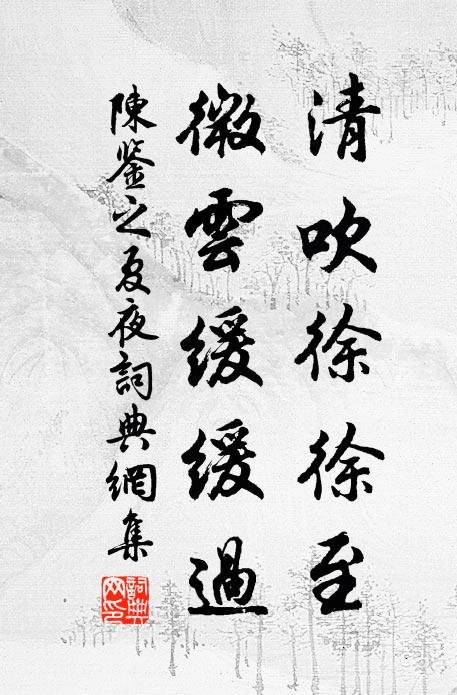 清吹徐徐至
微雲緩緩過
陳鉴之夏夜詞典網集
詞典
網印